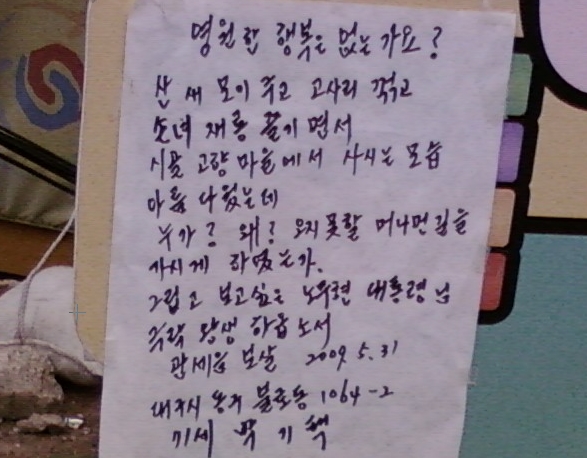 영원한 행복은 없는가요?
산새 모이 주고 고사리 꺾고
손녀 재롱 즐기면서
시골 고향 마을에서 사시는 모습
아름다웠는데
누가? 왜? 오지못할 머나먼길을
가시게 하였는가.
그립고 보고싶은 노무현 대통령님
극락 왕생 하십시요
관세음 보살 2009. 5. 31
대구시 동구 불로동 1064-2
박기